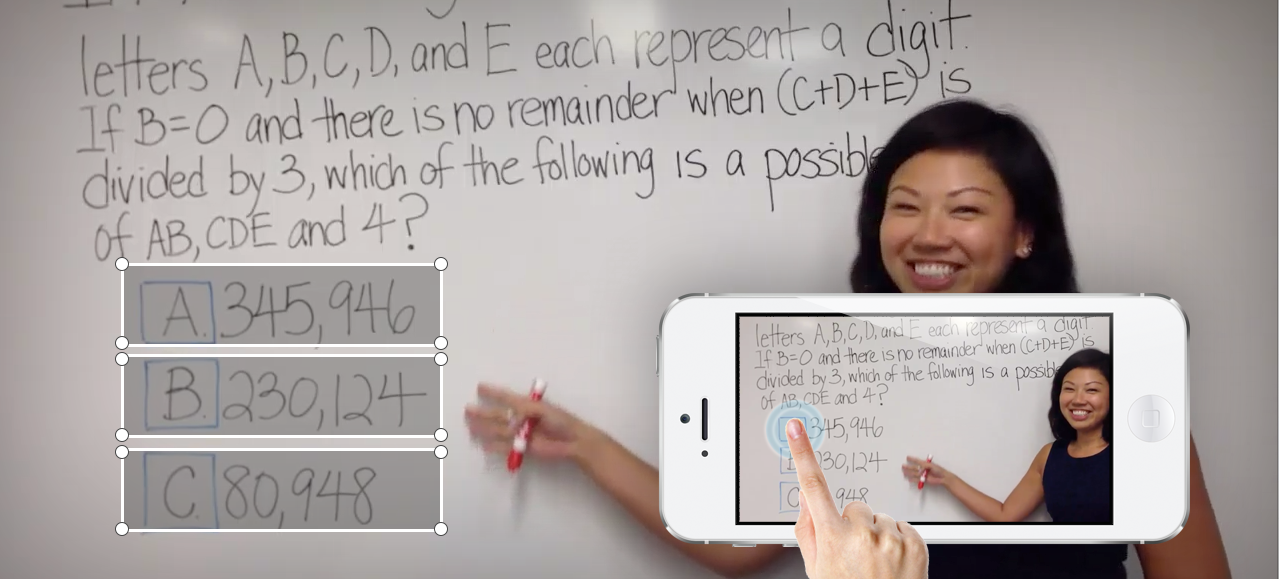 letters A, B, C, D, and E each represent a digit.
If B=0 and there is no remainder when (C+D+E) is
divided by 3, which of the following is a possible
of AB, CDE and 4?
A. 345,946
B. 230,124
C. 80,948
letters A, B, C, D, and E each represent a digit.
If B=0 and there is no remainder when (C+D+E) is
divided by 3, which of the following is a possible
of AB, CDE and 4?
345,946
230,124
C 948